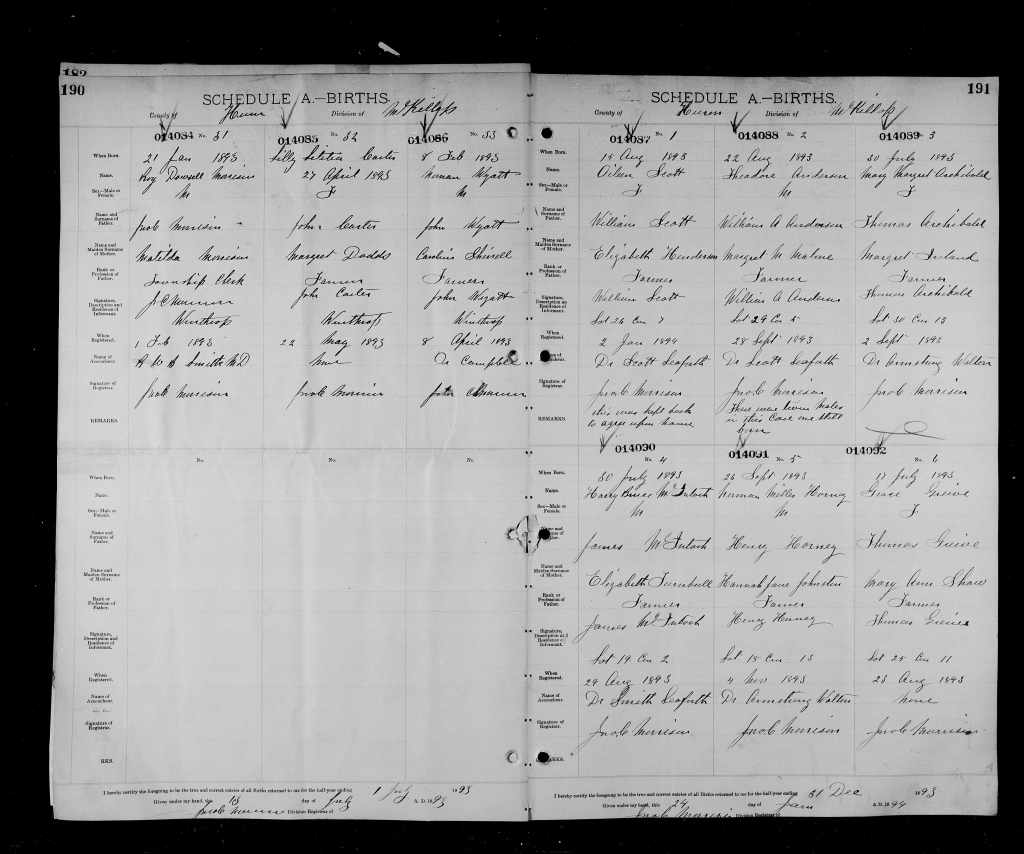 182
190
SCHEDULE A.—BIRTHS.
County of Huron Division of McKillop
014084 No. 31 014085 No. 32 014086 No. 33
When Born. 21 Jan 1893 Lilly Letitia Carter 8 Feb 1893
Name. Roy Dowsell Morrison 27 April 1893 Norman Wyatt
Sex—Male or Female. M F M
Name and Surname of Father. Jno C Morrison John Carter John Wyatt
Name and Maiden Surname of Mother. Matilda Morrison Margret Dodds Caroline
Rank or Profession of Father. Township Clerk Farmer Farmer
Signature, Description and Residence of Informant. J C Morrison John Carter John Wyatt
Winthrop Winthrop Winthrop
When Registered. 1 Feb 1893 22 May 1893 8 April 1893
Name of Accoucheur. Smith MD None Dr Campbell
Signature of Registrar. Jno C Morrison Jno C Morrison John C Morrison
REMARKS.
No. No. No.
When Born.
Name.
Sex—Male or Female.
Name and Surname of Father.
Name and Maiden Surname of Mother.
Rank or Profession of Father.
Signature, Description and Residence of Informant.
When Registered.
Name of Accoucheur.
Signature of Registrar.
RKS.
I hereby certify the foregoing to be the true and correct entries of all Births returned to me for the half-year ending 1 July 1893
Given under my hand, this 13 day of July A.D. 1893
Jno C Morrison Division Registrar of
191
SCHEDULE A.—BIRTHS.
County of Huron Division of McKillop
014087 No. 1 014088 No. 2 014089 3
When Born. 15 Aug 1893 22 Aug 1893 30 July 1893
Name. Scott Theodore Anderson Mary Margret Archibald
Sex—Male or Female. F M F
Name and Surname of Father. William Scott William A Anderson Thomas Archibald
Name and Maiden Surname of Mother. Elizabeth Henderson Margret M Malone Margret
Rank or Profession of Father. Farmer Farmer Farmer
Signature, Description and Residence of Informant. William Scott William A Anderson Thomas Archibald
Lot 26 Con 7 Lot 29 Con 5 Lot 30 Con 13
When Registered. 2 Jan 1894 28 Sept 1893 2 Sept 1893
Dr Scott Seaforth Dr Scott Seaforth Dr Armstrong Walton
Signature of Registrar. Jno C Morrison Jno C Morrison Jno C Morrison
REMARKS this was kept back to agree upon name There were twins males in this Case one still born
014090 No. 4 014091 No. 5 014092 No. 6
When Born. 30 July 1893 26 Sept 1893 17 July 1893
Name. Harry Bruce McIntosh Norman Miller Horney Grace Grieve
Sex—Male or Female. M M F
Name and Surname of Father. James McIntosh Henry Horney Thomas Grieve
Name and Maiden Surname of Mother. Elizabeth Turnbull Hannah Jane Johnston Mary Ann Shaw
Rank or Profession of Father. Farmer Farmer Farmer
Signature, Description and Residence of Informant. James McIntosh Henry Horney Thomas Grieve
Lot 19 Con 2 Lot 15 Con 13 Lot 25 Con 11
When Registered. 29 Aug 1893 4 Nov 1893 23 Aug 1893
Name of Accoucheur. Dr Smith Seaforth Dr Armstrong Walton None
Signature of Registrar. Jno C Morrison Jno C Morrison Jno C Morrison
I hereby certify the foregoing to be the true and correct entries of all Births returned to me for the half-year ending 31 Dec 1893
Given under my hand, this 24 day of Jan A.D. 1894
Jno C Morrison Division Registrar of